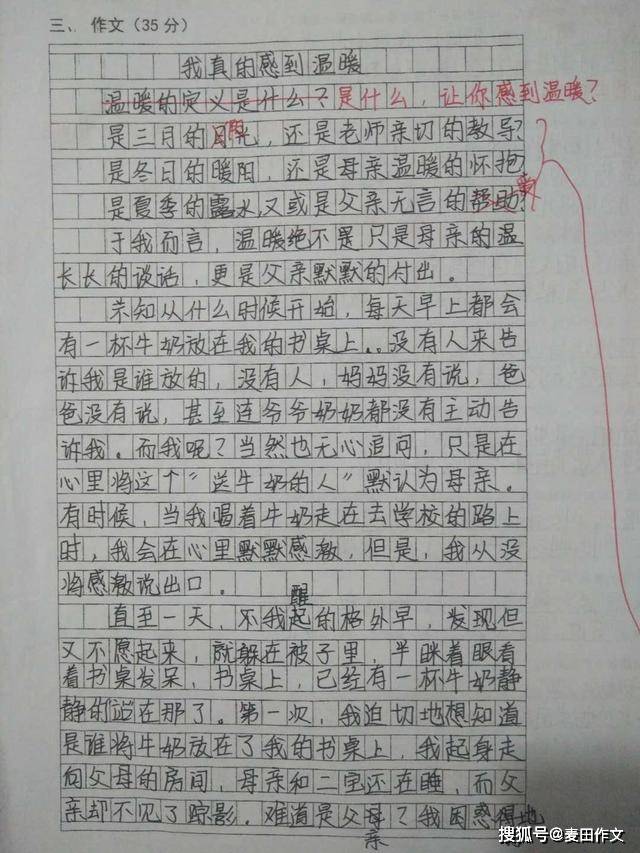 三、作文（35分）
我真的感到温暖
温暖的定义是什么？是什么，让你感到温暖？
是三月的阳光，还是老师亲切的教导？
是冬日的暖阳，还是母亲温暖的怀抱？
是夏季的露水，又或是父亲无言的帮助？
于我而言，温暖绝不是只是母亲的温
长长的谈话，更是父亲默默的付出。
未知从什么时候开始，每天早上都会
有一杯牛奶放在我的书桌上..没有人来告
诉我是谁放的，没有人，妈妈没有说，爸
爸没有说，甚至连爷爷奶奶都没有主动告
诉我。而我呢？当然也无心追问，只是在
心里将这个"送牛奶的人"默认为母亲。
有时候，当我喝着牛奶走在去学校的路上
时，我会在心里默默感激，但是，我从没
将感激说出口。
直至一天，不我醒起的格外早，发现但
又不愿起来，就躲在被子里，半眯着眼看
着书桌发呆，书桌上，已经有一杯牛奶静
静的站在那了。第一次，我迫切地想知道
是谁将牛奶放在了我的书桌上，我起身走
向父母的房间，母亲和二宝还在睡，而父
亲却不见了踪影。难道是父亲？我困惑得地
搜狐号@麦田作文